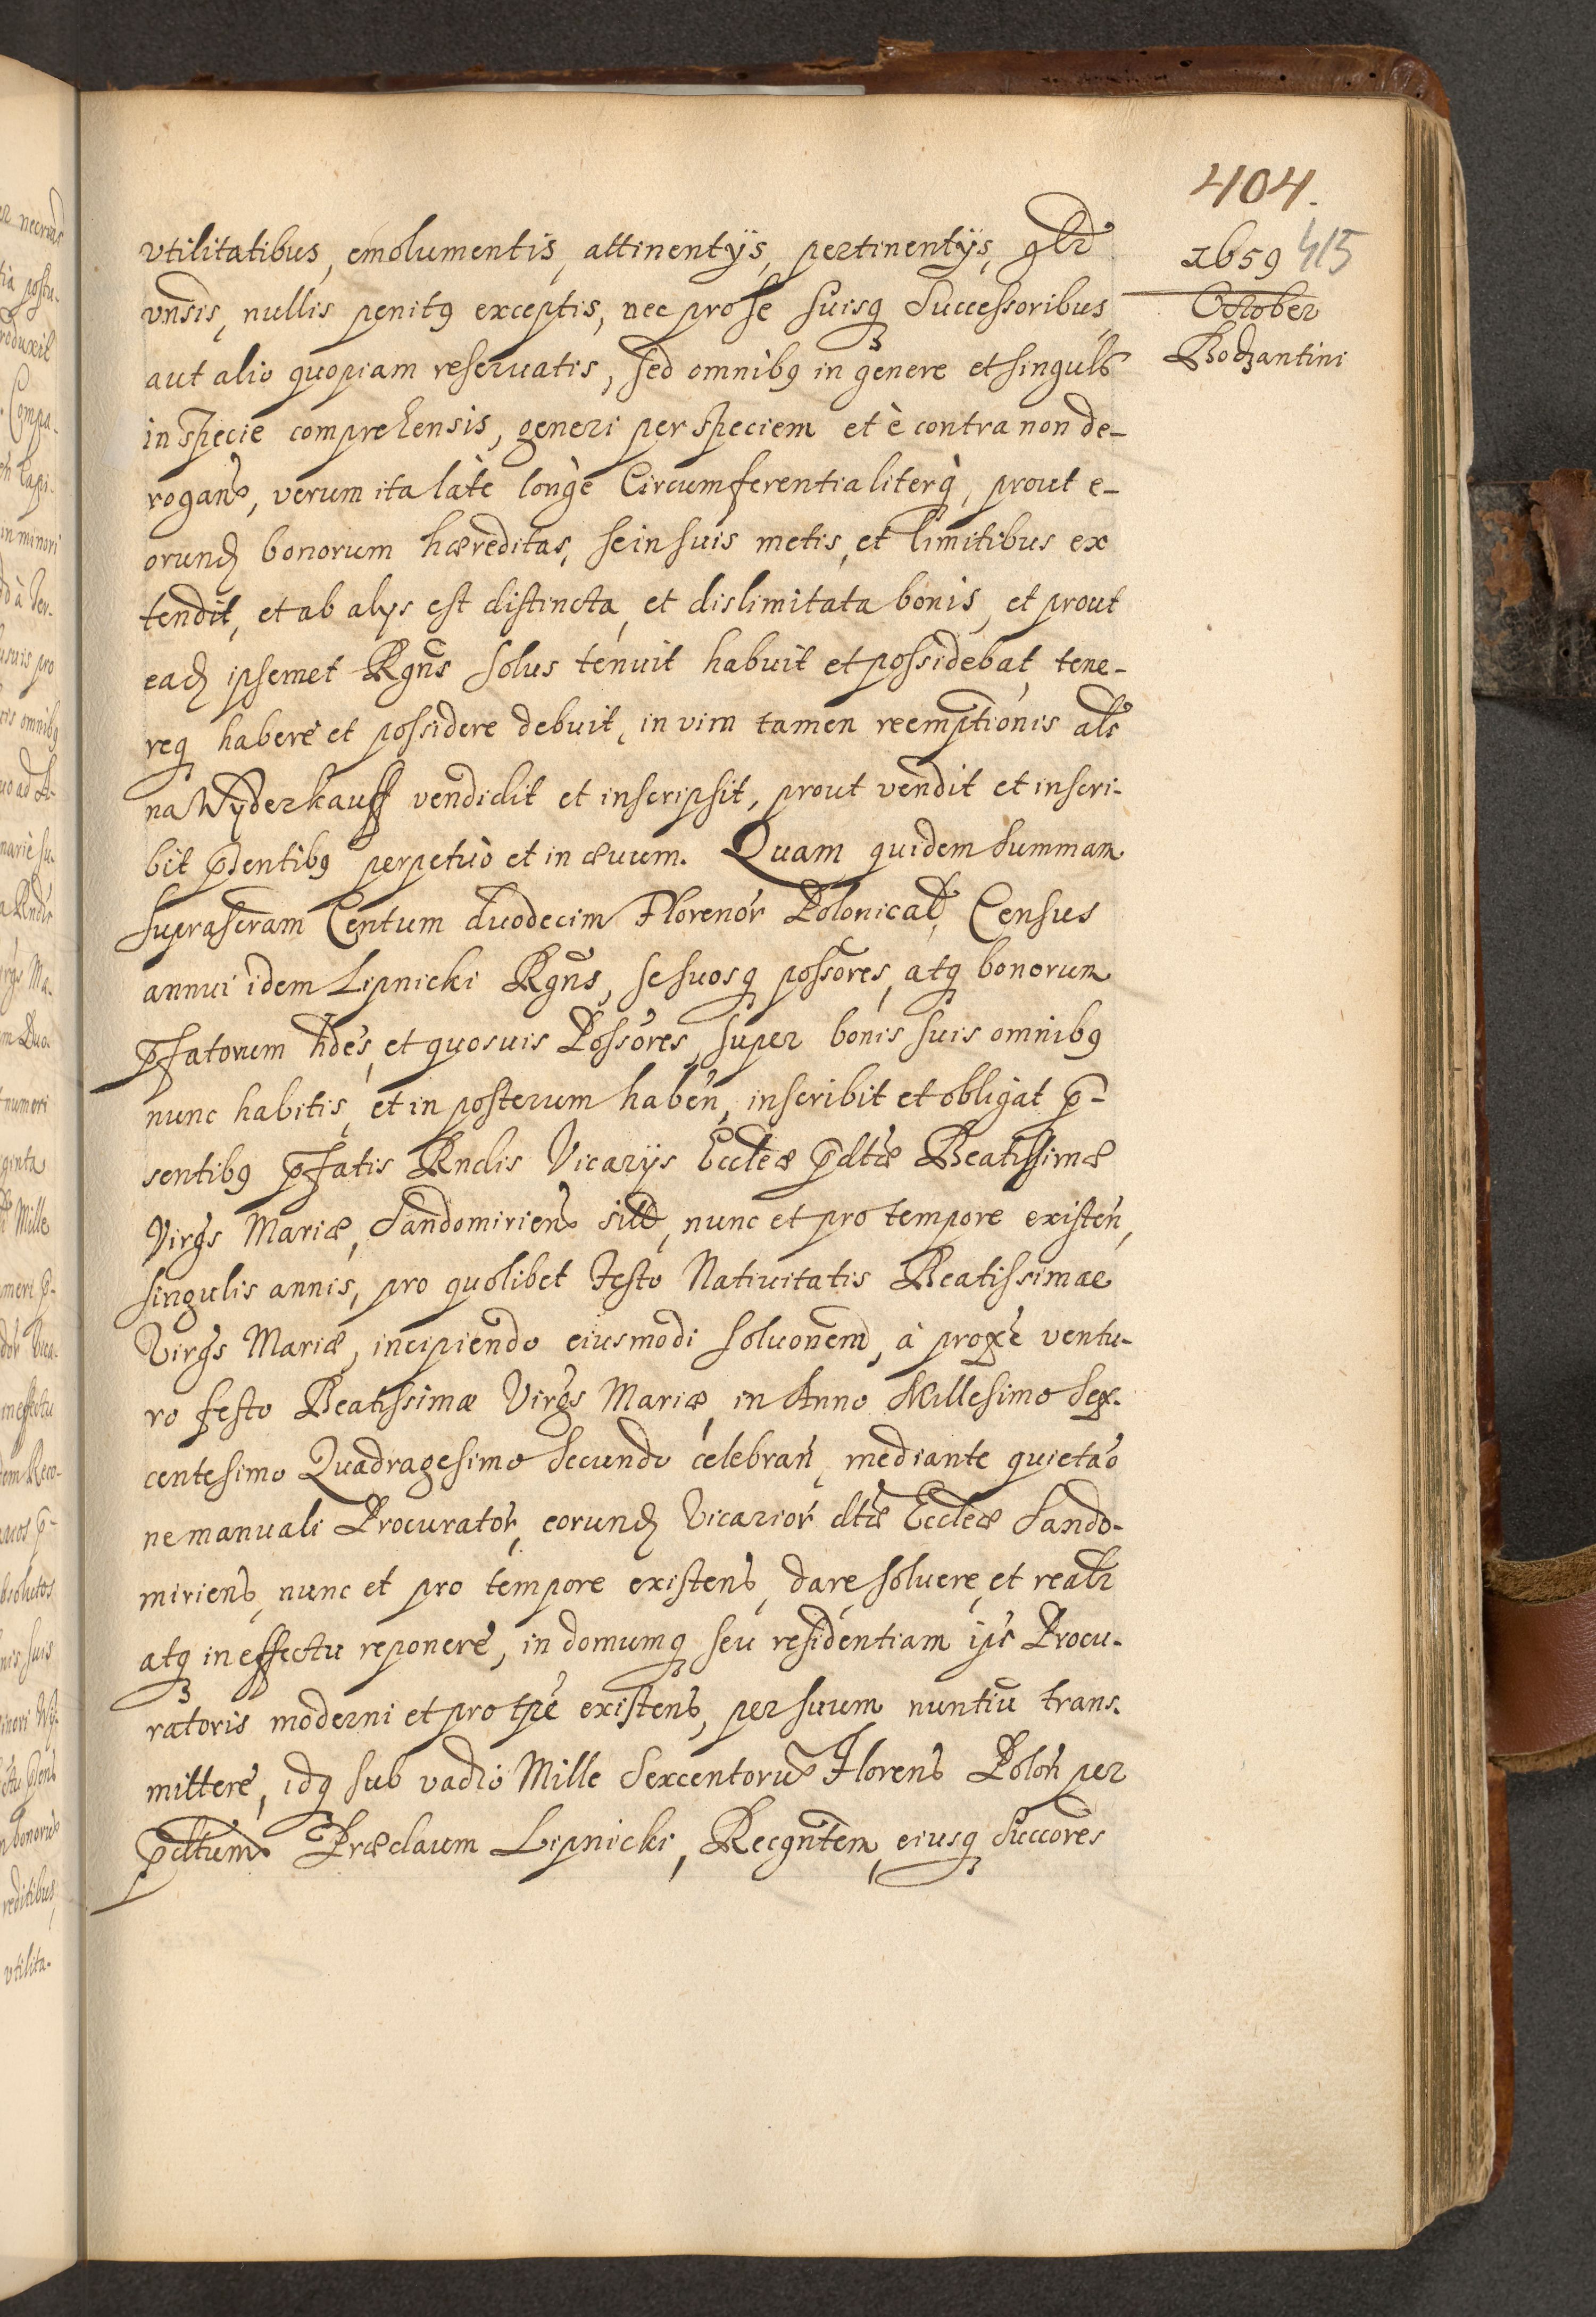 404.
1659 415
October
Bodzantini
vtilitatibus, emolumentis, attinentÿs, pertinentÿs, gñlr
vnśis, nullis penitq exceptis, nec pro se suisq Successoribus,
aut alio quopiam reseruatis, sed omnibq in genere et singuls
in specie comprehensis, generi per speciem et è contra non de-
rogans, verum ita latè longè Circumferentialiterq̀, prout e-
orund bonorum hæreditas, se in suis metis, et limitibus ex
tendit, et ab alys est distincta, et dislimitata bonis, et prout
ead ipsemet Rgñs solus tenuit habuit et possidebat, tene-
req habere et possidere debuit, in vim tamen reemptionis als
na Wÿderkauff vendidit et inscripsit, prout vendit et inscri-
bit p̄sentibq perpetuò et in æuum. Quam quidem Summam
suprascram Centum duodecim Florenor Polonical, Census
annui idem Lipnicki Rgñs, se suosq possores, atq bonorum
p̄fatorum hdes, et quosuis Possores, super bonis suis omnibq
nunc habitis, et in posterum haben, inscribit et obligat p̄-
sentibq p̄fatis Rndis Vicarÿs Eccleæ p̄dtæ Beatissimæ
Virgs Mariæ, Sandomiriens sitæ, nunc et pro tempore existen,
singulis annis, pro quolibet Festo Natiuitatis Beatissimae
Virgs Mariæ, incipiendo eiusmodi soluonem, à proxe ventu-
ro festo Beatissimæ Virgs Mariæ, in Anno Millesimo Sex-
centesimo Quadragesimo Secundo celebran, mediante quietao
ne manuali Procurator, eorund Vicarior dtæ Eccleæ Sando-
miriens, nunc et pro tempore existens, dare, soluere, et realr
atq in effectu reponere, in domumq seu residentiam ips Procu-
ratoris moderni et pro tpe existens, per suum nuntiū trans-
mittere, idq sub vadio Mille Sexcentoru Florens Poloñ per
p̄dtum Præclaum Lipnicki, Recgntem, eiusq Succores